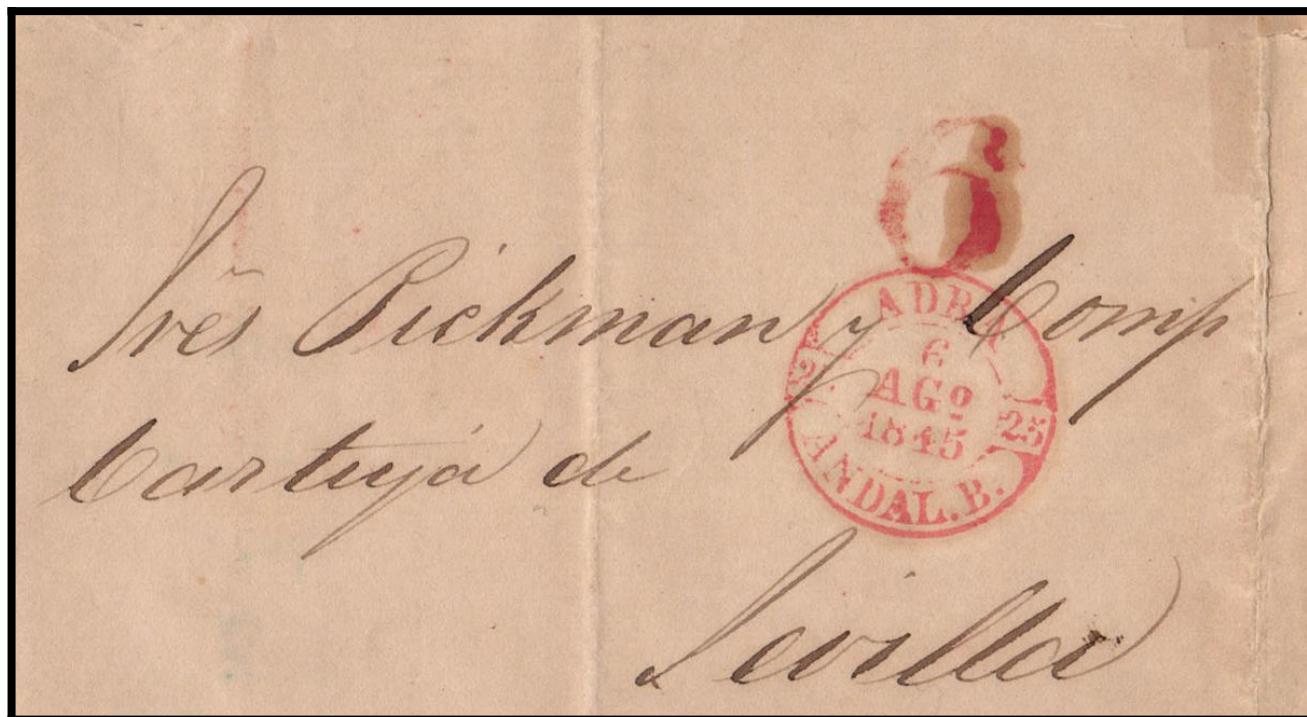 6
Sres Pickman y Comp
Cartuja de
Sevilla
ADRA
6
AGº
1845
25
ANDAL. B.